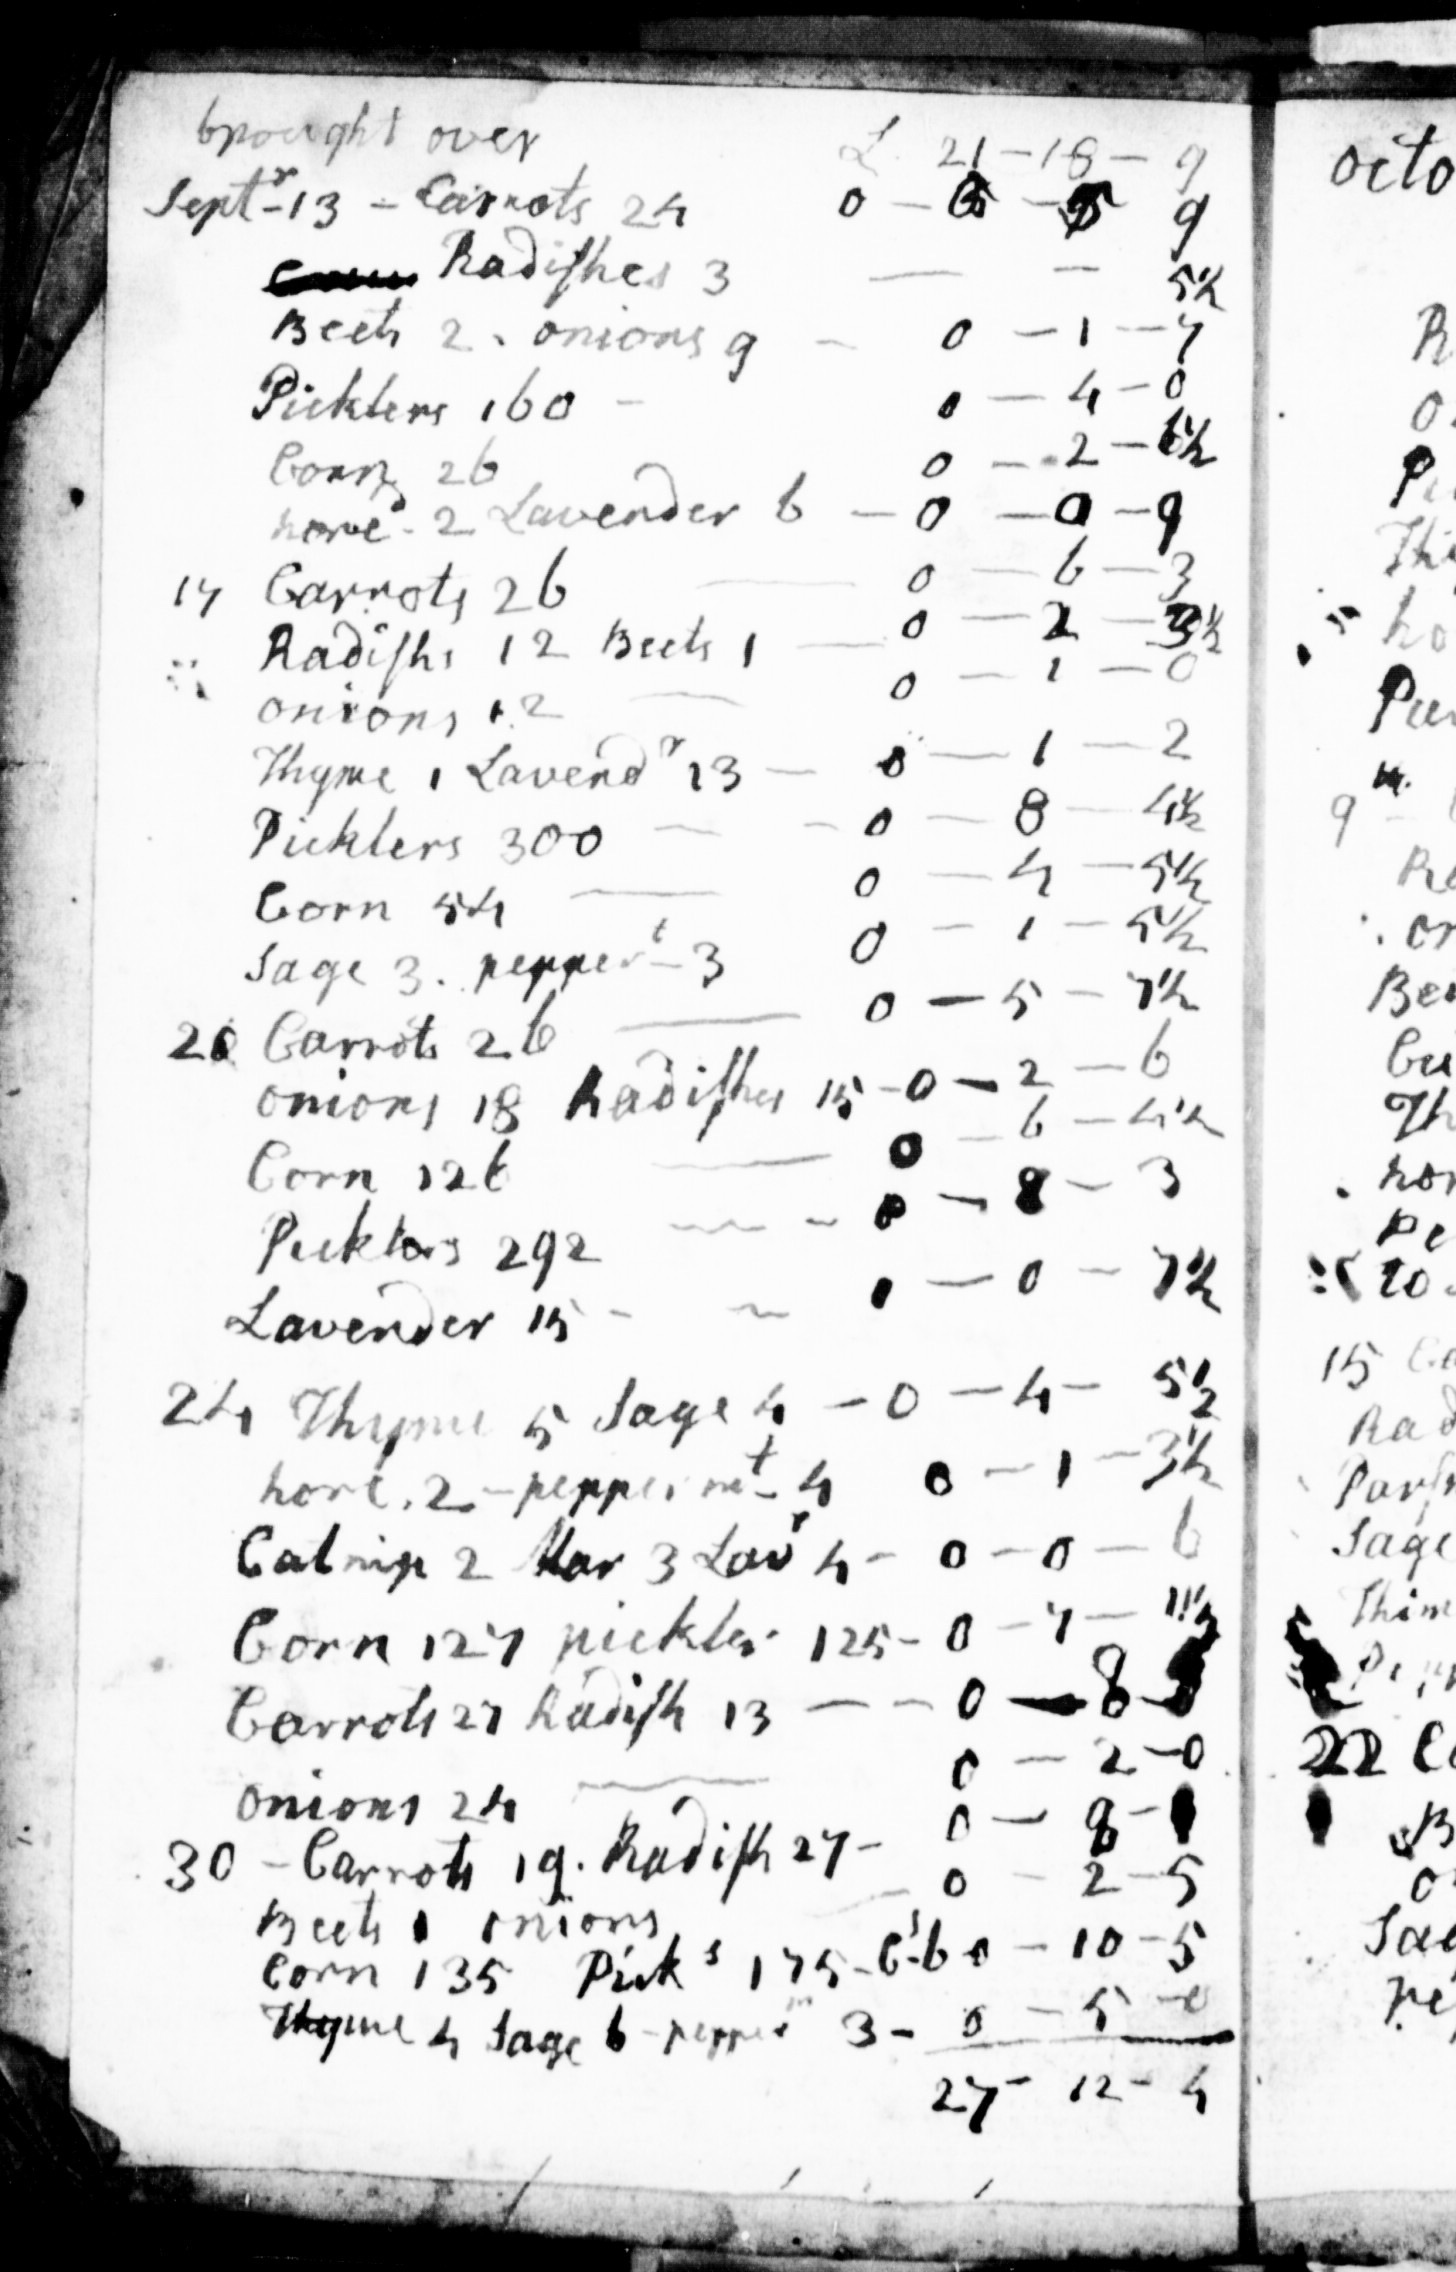 brought over £ 21 - 18 - 9
Septr - 13 - Carrots 24 0 - 9
Radishes 3 — — 5½
Beets 2. onions 9 - 0 - 1 - 7
Picklers 160 - 0 - 4 - 0
Corn 26 0 - 2 - 6½
hore - 2 Lavender 6 - 0 - 0 - 9
17 Carrots 26 — 0 - 6 - 3
Radishs 12 Beets 1 — 0 - 2 - 3½
onions 12 — 0 - 1 - 0
Thyme 1 Lavendr 13 - 0 - 1 - 2
Picklers 300 - - 0 - 8 - 4½
Corn 54 — 0 - 4 - 5½
Sage 3. peppert - 3 0 - 1 - 5½
20 Carrots 26 — 0 - 5 - 7½
onions 18 Radishes 15 - 0 - 2 - 6
Corn 126 — 0 - 6 - 4½
Picklers 292 - - 0 - 8 - 3
Lavender 15 - - 0 - 7½
24 Thyme 5 Sage 4 - 0 - 4 - 5½
hore. 2 - peppermt - 4 0 - 1 - 3½
Catnip 2 Mar 3 Lavr 4 - 0 - 0 - 6
Corn 127 pickler 125 - 0 - 7 - 1½
Carrots 27 Radish 13 - - 0 - 8 -
onions 24 — 0 - 2 - 0
30 - Carrots 19. Radish 27 - 0 - 8 -
Beets 1 onions 0 - 2 - 5
Corn 135 Picks 175 - Cs - 6 0 - 10 - 5
Thyme 4 Sage 6 - pepperm 3 - 0 - 5 - 0
27 - 12 - 4
octo
R
Pi
Thi
ho
9
or
Bee
Cu
Th
hor
Pe
20
15
Rad
Parsn
Sage
Thim
22 C
B
Sag
pe